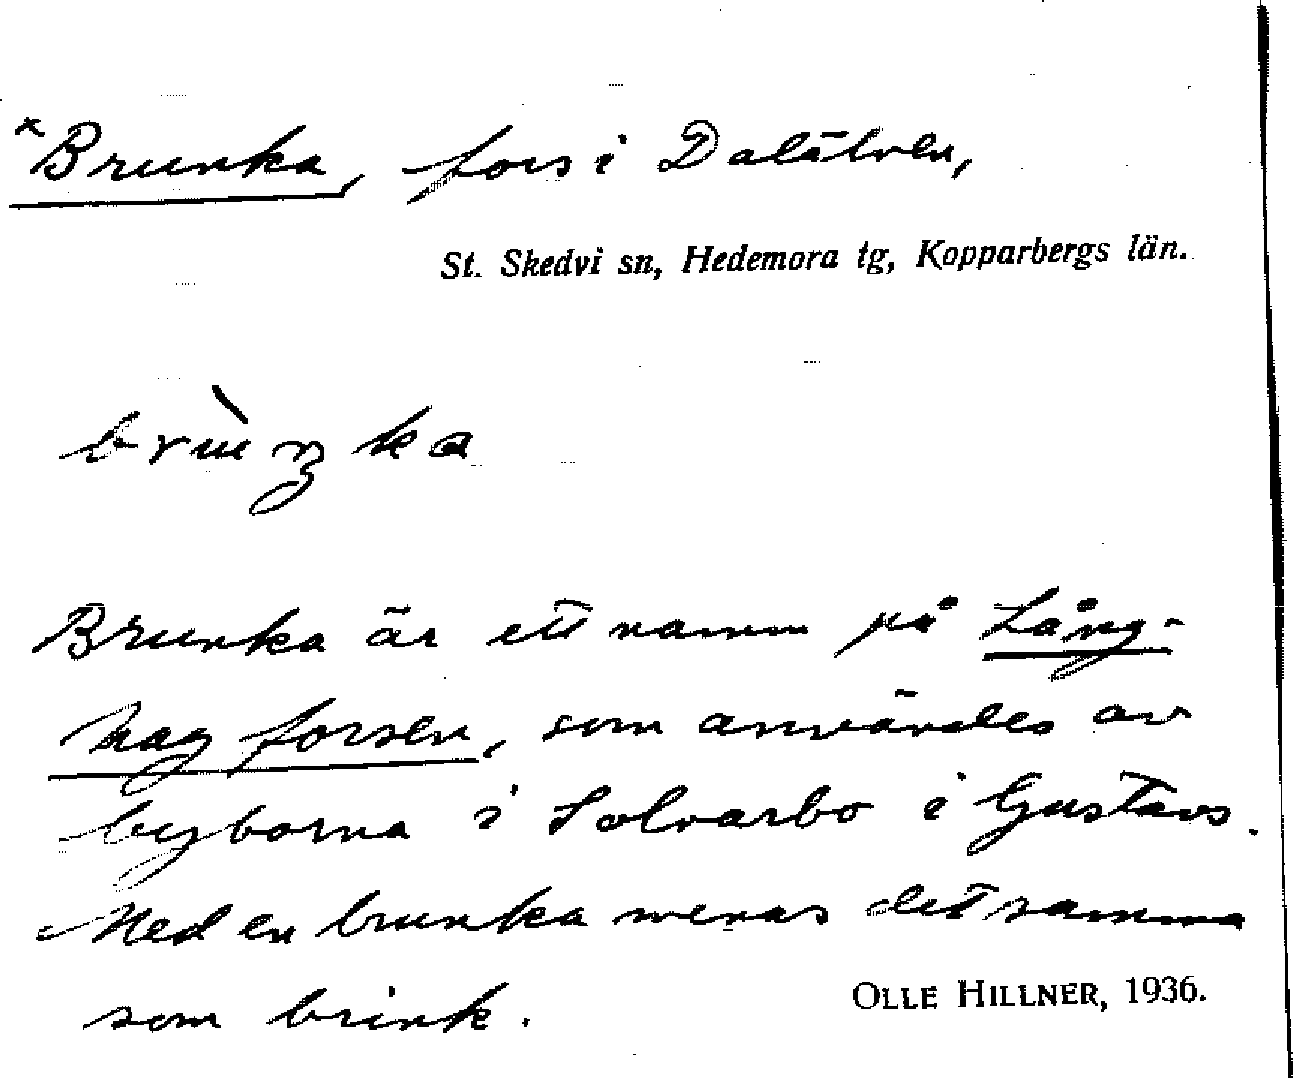 *Brunka, fors i Dalälven,
St. Skedvi sn, Hedemora tg, Kopparbergs län.
brùŋka
Brunka är ett namn på Lång-
hag forsen, som användes av
byborna i Solvarbo i Gustavs.
Med en brunka menas det samma
som brink.
OLLE HILLNER, 1936.